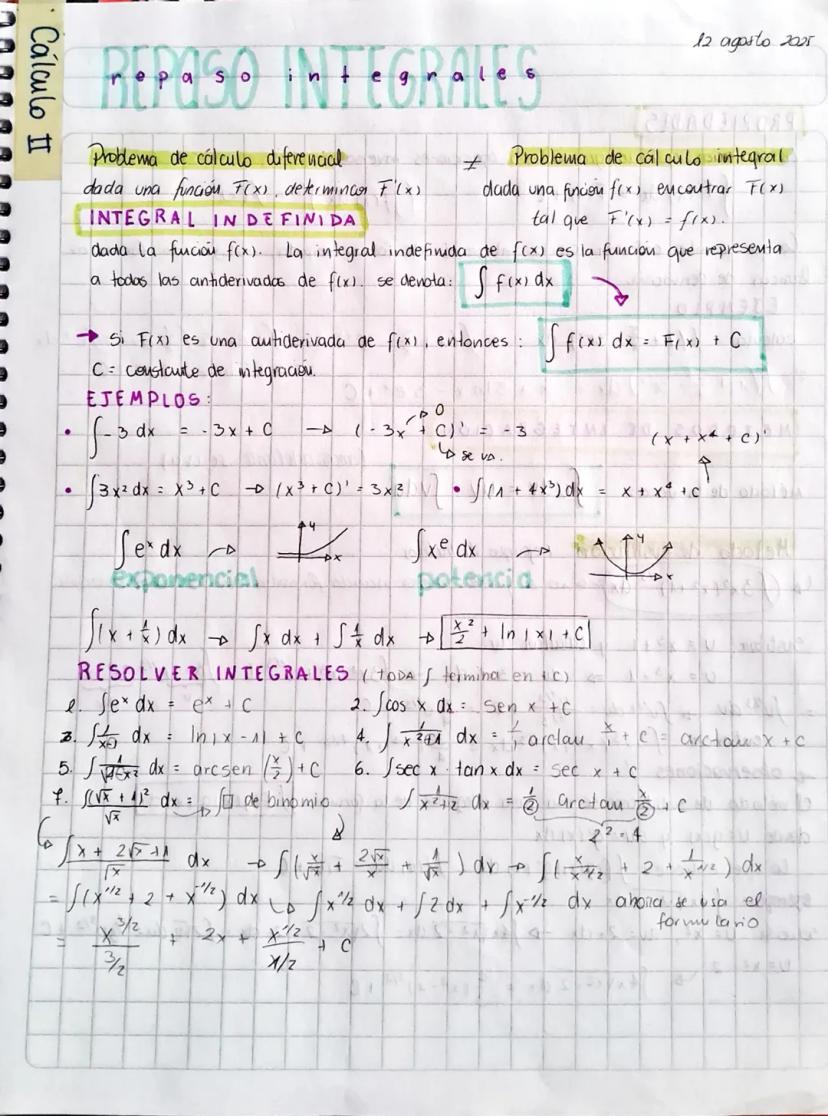 12 agosto 2025
Cálculo II
REPASO INTEGRALES
repaso integrales
Problema de cálculo diferencial ≠ Problema de cálculo integral
dada una función F(x), determinar F'(x) dada una función f(x), encontrar F(x)
INTEGRAL INDEFINIDA tal que F'(x) = f(x).
dada la función f(x). La integral indefinida de f(x) es la función que representa
a todas las antiderivadas de f(x). se denota: ∫ f(x) dx
→ Si F(x) es una antiderivada de f(x), entonces: ∫ f(x) dx = F(x) + C
C = constante de integración.
EJEMPLOS:
• ∫-3 dx = -3x + C → (-3x + C)' = -3 (x + x⁴ + c)'
0
↳ se va.
• ∫3x² dx = x³ + C → (x³ + C)' = 3x² • ∫(1 + 4x³) dx = x + x⁴ + c
∫eˣ dx → y x ∫xᵉ dx → y x
exponencial potencia
∫(x + 1/x) dx → ∫x dx + ∫1/x dx → x²/2 + ln|x| + C
RESOLVER INTEGRALES (TODA ∫ termina en +C)
1. ∫eˣ dx = eˣ + C 2. ∫cos x dx = sen x + C
3. ∫1/(x-1) dx = ln|x - 1| + C 4. ∫1/(x²+1) dx = 1/1 arctan x/1 + C = arctan x + c
5. dx = arcsen (x/2) + C 6. ∫sec x · tan x dx = sec x + c
7. ∫(√x + 1)²/√x dx = ∫□ de binomio ∫1/(x²+2) dx = 1/2 arctan x/2 + C
2² = 4
↳ ∫(x + 2√x + 1)/√x dx → ∫(x/√x + 2√x/x + 1/√x) dx → ∫(x/x^1/2 + 2 + 1/x^1/2) dx
= ∫(x^1/2 + 2 + x^-1/2) dx ↳ ∫x^1/2 dx + ∫2 dx + ∫x^-1/2 dx ahora se usa el
formulario
= x^3/2 / 3/2 + 2x + x^1/2 / 1/2 + C